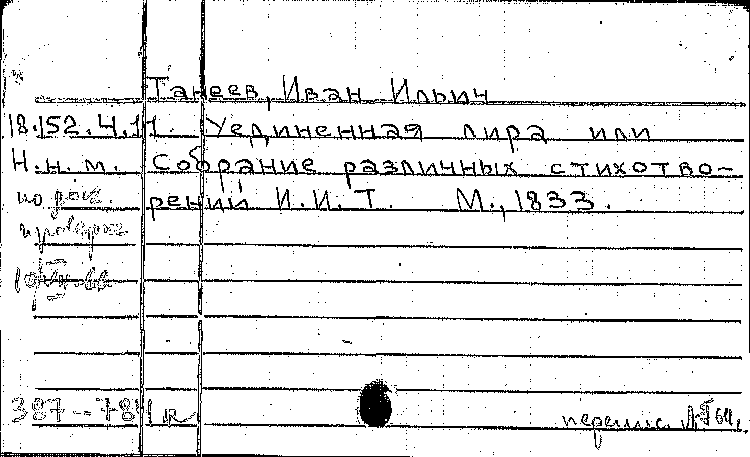 Танеев, Иван Ильич
18.152.4.11. Уединенная лира или
Н.н.м. собрание различных стихотво-
по рений И.И.Т. М., 1833.
387--784